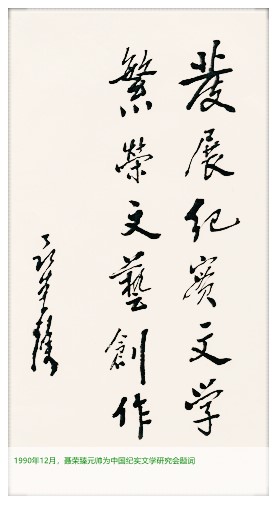 發展紀實文学
繁榮文藝創作
聂荣臻
1990年12月，聂荣臻元帅为中国纪实文学研究会题词